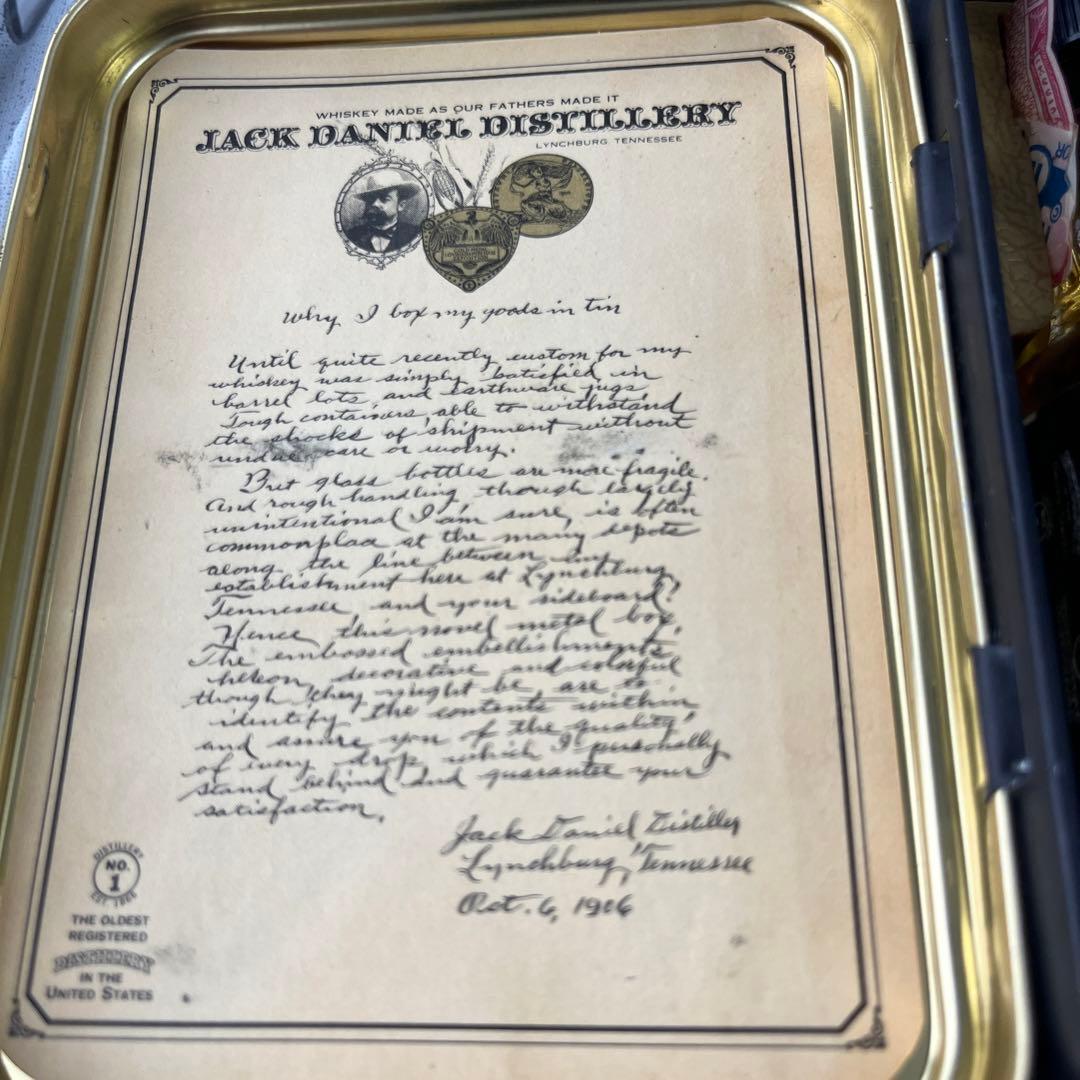 WHISKEY MADE AS OUR FATHERS MADE IT
JACK DANIEL DISTILLERY
LYNCHBURG TENNESSEE
Why I box my goods in tin
Until quite recently custom for my
whiskey was simply satisfied in
barrel lots and earthware jugs.
Tough containers able to withstand
the shocks of shipment without
undue care or worry.
But glass bottles are more fragile.
And rough handling though largely
unintentional I am sure, is often
commonplace at the many depots
along the line between my
establishment here at Lynchburg,
Tennessee and your sideboard.
Hence this novel metal box.
The embossed embellishments
hereon decorative and colorful
though they might be, are to
identify the contents within
and assure you of the quality
of every drop which I personally
stand behind and guarantee your
satisfaction.
Jack Daniel Distiller
Lynchburg, Tennessee
Oct. 6, 1906
DISTILLERY
NO.
1
EST. 1866
THE OLDEST
REGISTERED
DISTILLERY
IN THE
UNITED STATES